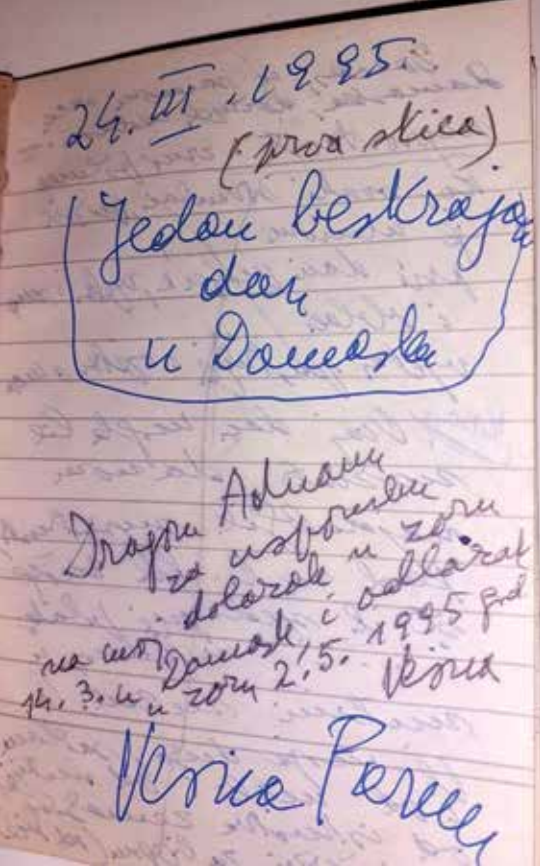 24. III. 1995.
(prva skica)
Jedan beskrajan
dan
u Damasku
Dragom Adnanu
za uspomenu
dolazak u zoru
na moj Damask, i odlazak
14. 3. u u zoru 2. 5. 1995 god
Vesna
Vesna Parun